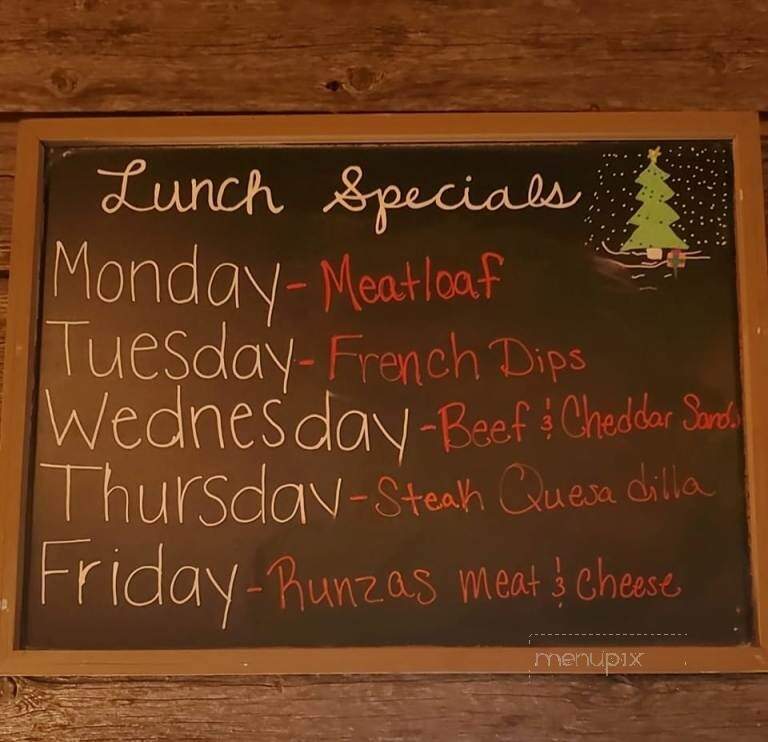 Lunch Specials
Monday - Meatloaf
Tuesday - French Dips
Wednesday - Beef & Cheddar Sand.
Thursday - Steak Quesadilla
Friday - Runzas meat & cheese
menupix